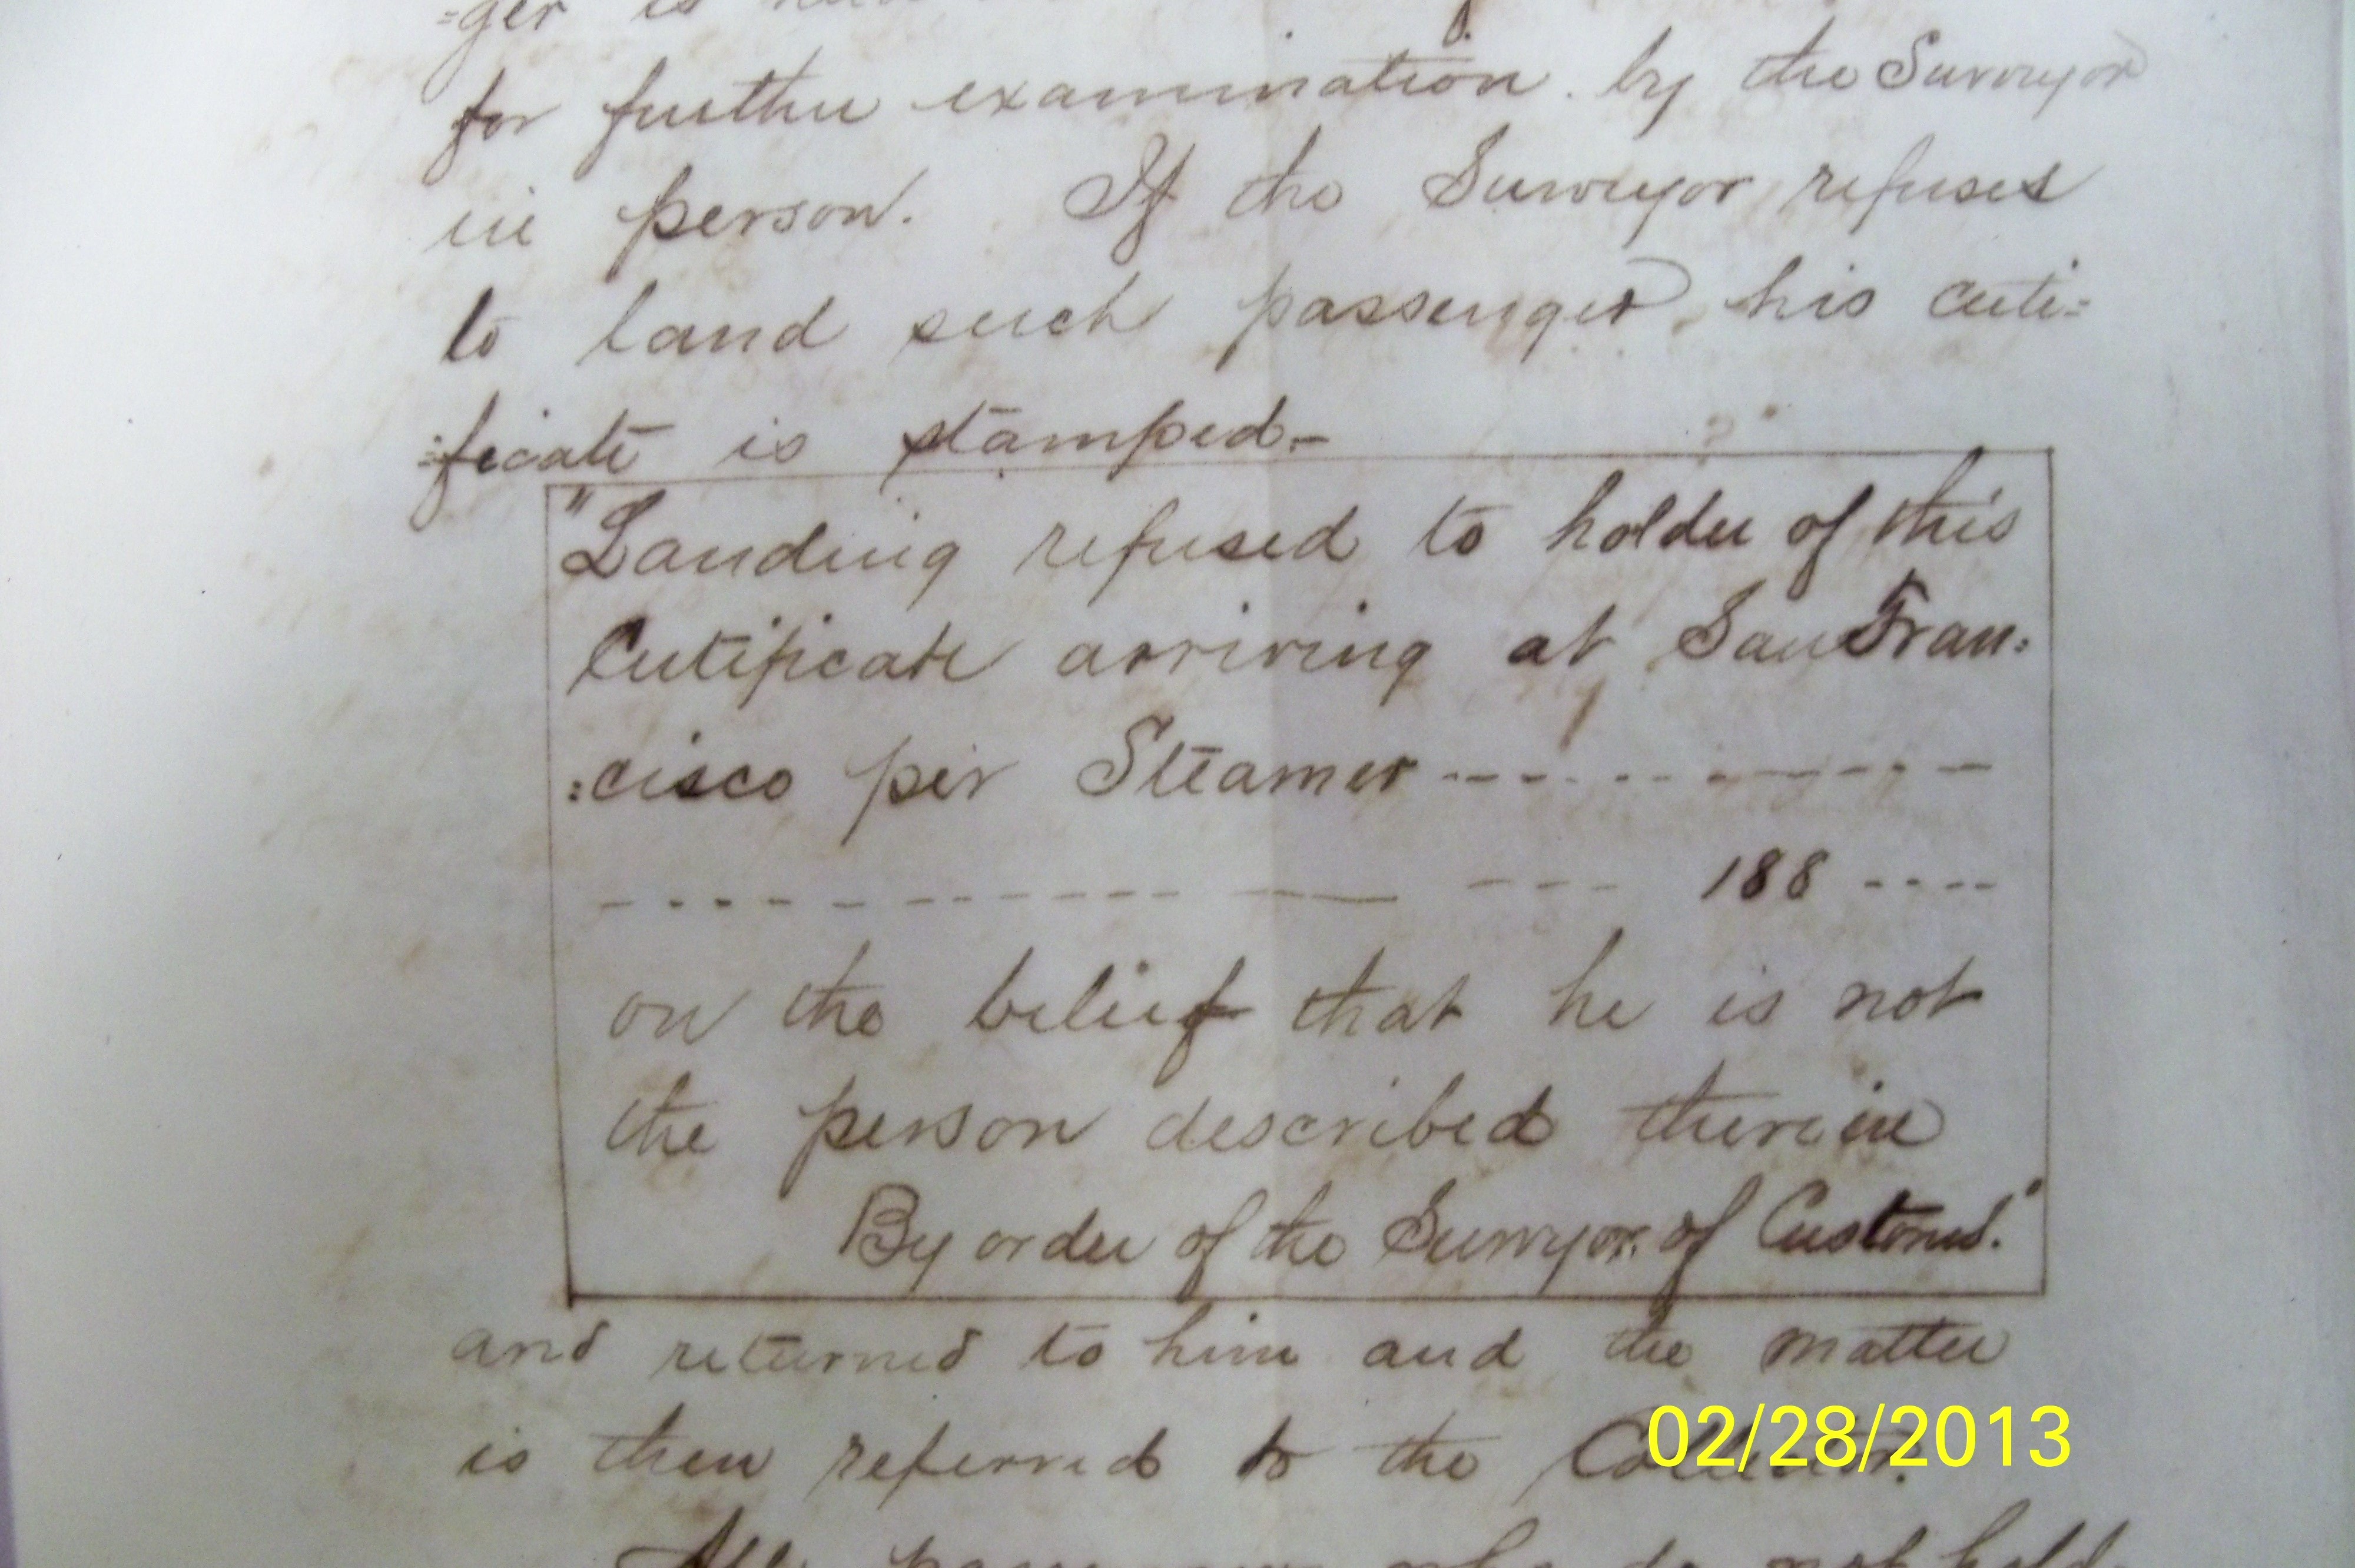 =ger is
for further examination by the Surveyor
in person. If the Surveyor refuses
to land such passenger, his certi=
=ficate is stamped.-
"Landing refused to holder of this
Certificate arriving at San Fran=
=cisco per Steamer ------------
------------------ 188 ----
on the belief that he is not
the person described therein
By order of the Surveyor of Customs."
and returned to him and the matter
is then referred to the Collector.
All who do not hold
02/28/2013